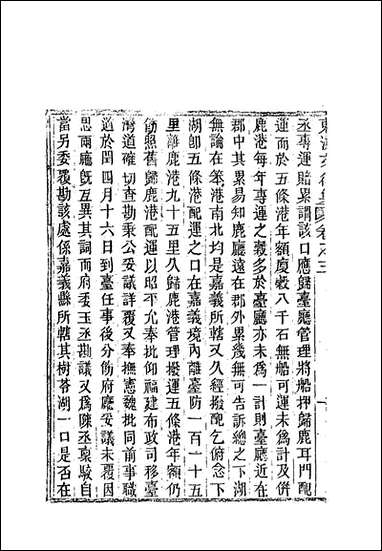 東溟文後集 卷之三
丞專運賠累謂該口應歸臺廳管理將船押歸鹿耳門配
運而於五條港年額廈穀八千石無船可運未為計及併
鹿港每年專運之穀多於臺廳亦未為一計則臺廳近在
郡中其累易知鹿廳遠在郡外累幾無可告訴總之下湖
無論在笨港南北均是嘉義所轄又久經撥配乞俯念下
湖卽五條港配運之口在嘉義境內離臺防一百一十五
里離鹿港九十五里久歸鹿港管理撥運五條港年額仍
飭照舊歸鹿港配運以昭平允奉批仰福建布政司移臺
灣道確切查勘秉公妥議詳覆又奉撫憲魏批同前事職
道於閏四月十六日到臺任事後分飭府廳妥議未覆因
思兩廳旣互異其詞而府委玉丞勘議又為陳丞稟駁自
當另委覆勘該處係嘉義縣所轄其樹苓湖一口是否在